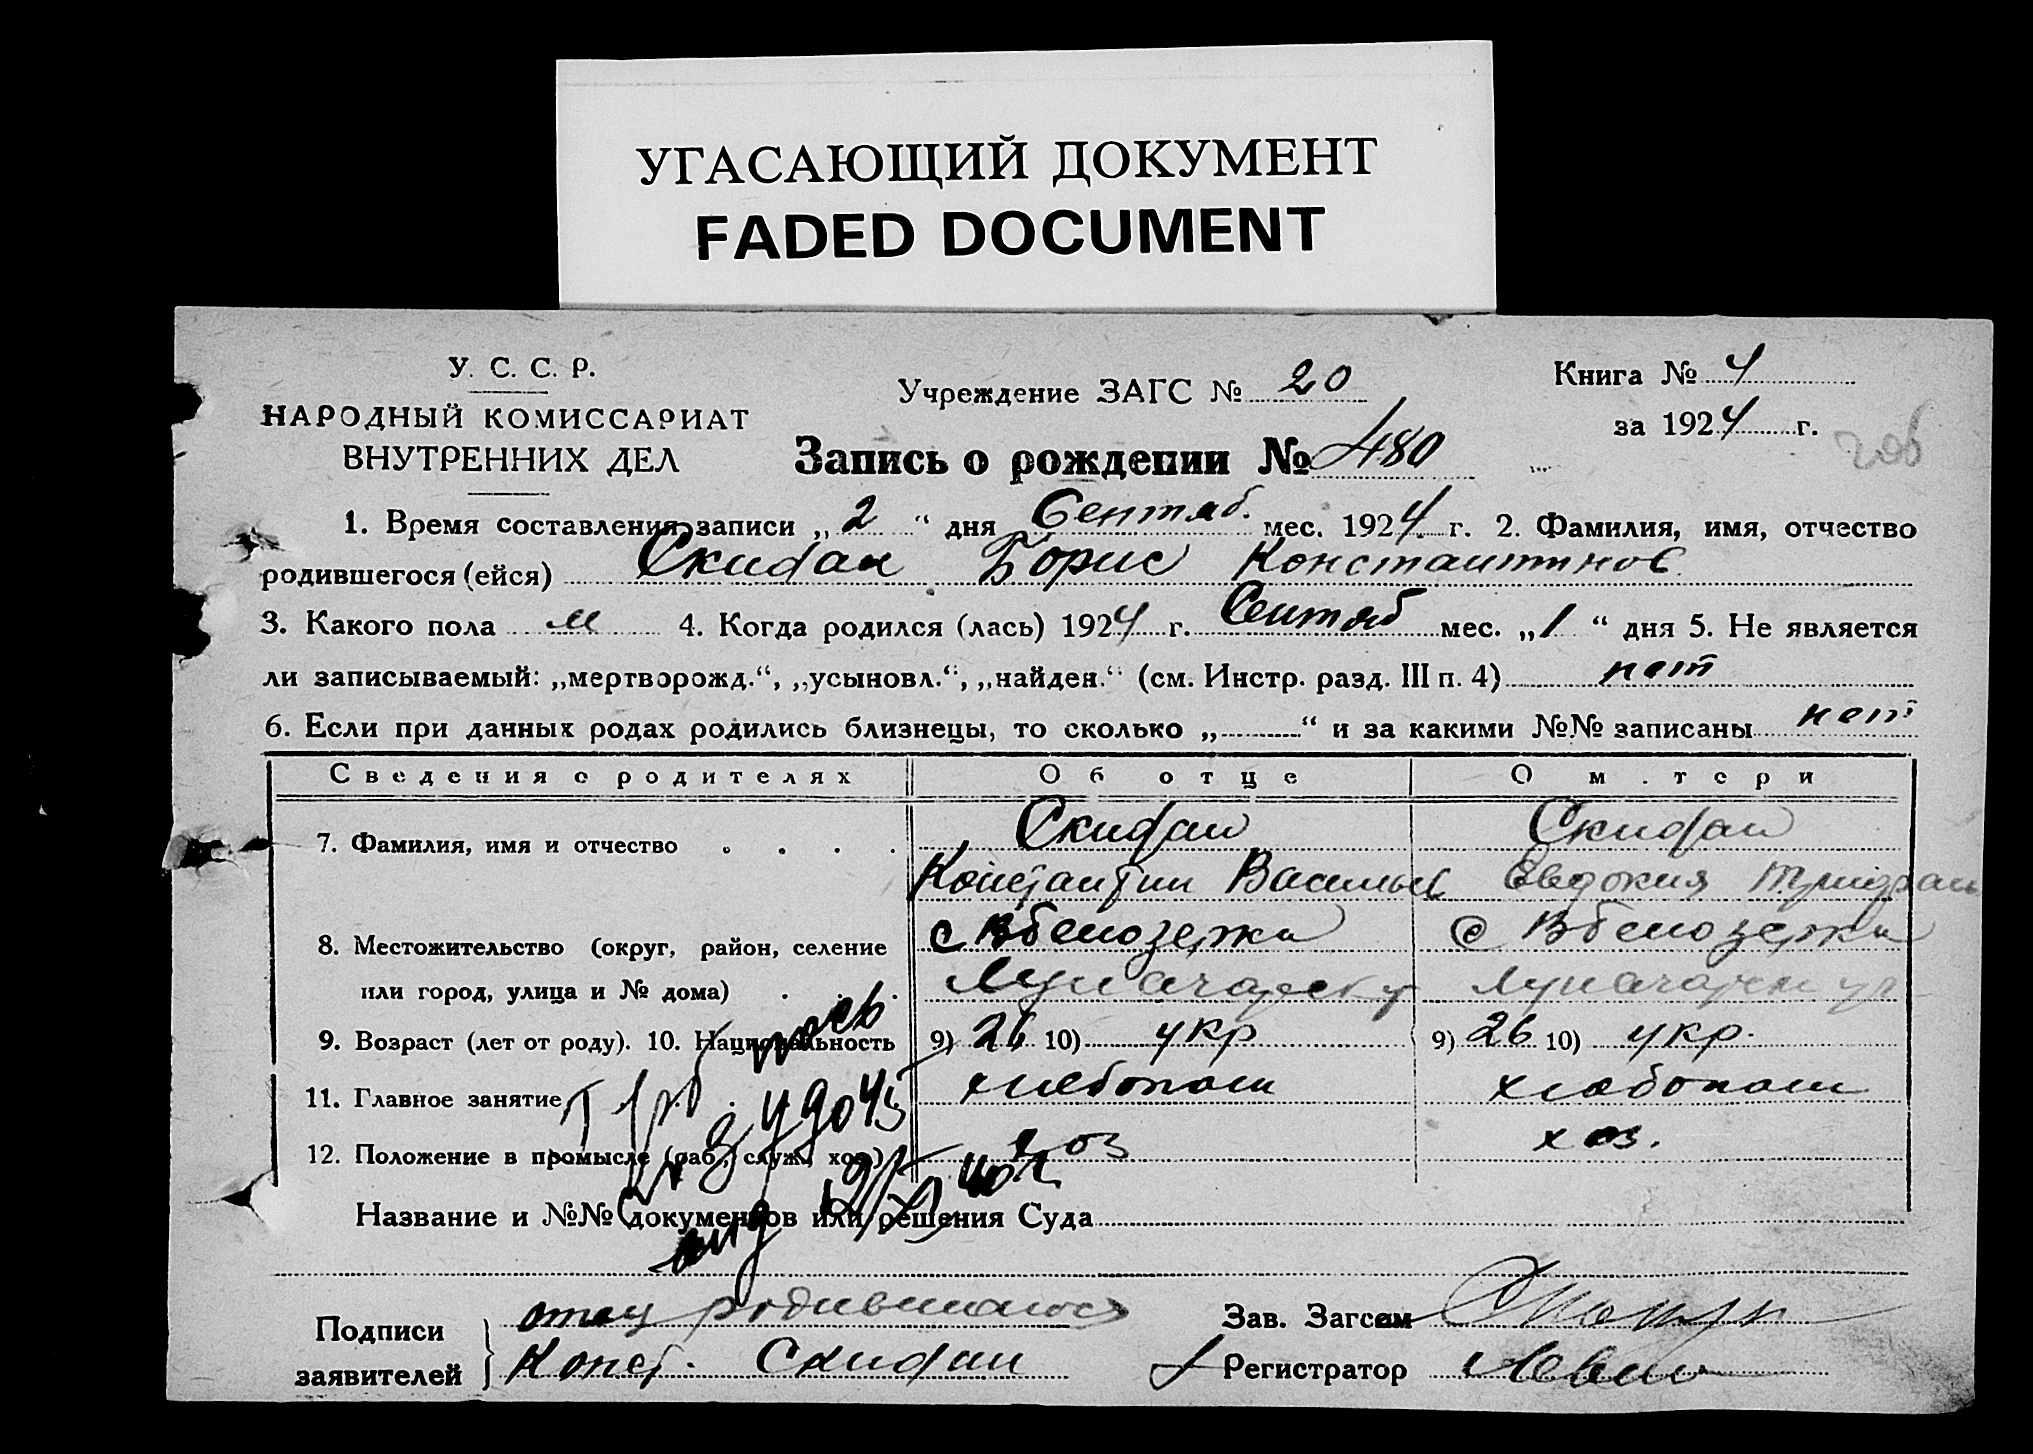 УГАСАЮЩИЙ ДОКУМЕНТ
FADED DOCUMENT
У. С. С. Р.
НАРОДНЫЙ КОМИССАРИАТ
ВНУТРЕННИХ ДЕЛ
Учреждение ЗАГС № 20
Книга № 4
за 1924 г.
Запись о рождении № 480
1. Время составления записи „2“ дня Сентяб. мес. 1924 г. 2. Фамилия, имя, отчество
родившегося (ейся) Скидан Борис Константинов.
3. Какого пола м 4. Когда родился (лась) 1924 г. Сентяб мес. „1“ дня 5. Не является
ли записываемый: „мертворожд.“, „усыновл.“, „найден.“ (см. Инстр. разд. III п. 4) нет
6. Если при данных родах родились близнецы, то сколько „ “ и за какими №№ записаны нет
Сведения о родителях Об отце О м тери
7. Фамилия, имя и отчество Скидан Скидан
Константин Васильев Евдокия
8. Местожительство (округ, район, селение с Вбелозерка с Вбелозерка
или город, улица и № дома)
9. Возраст (лет от роду). 10. Национальность 9) 26 10) укр 9) 26 10) укр.
11. Главное занятие хлебопаш хлебопаш
12. Положение в промысле (раб., служ., хоз.) хоз хоз.
Название и №№ документов или решения Суда
Подписи заявителей
отец родившегося
Конст. Скидан
Зав. Загсом
Регистратор